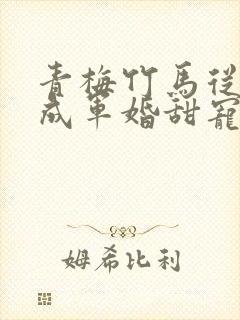 青梅竹馬從
成軍婚甜寵
姆希比利